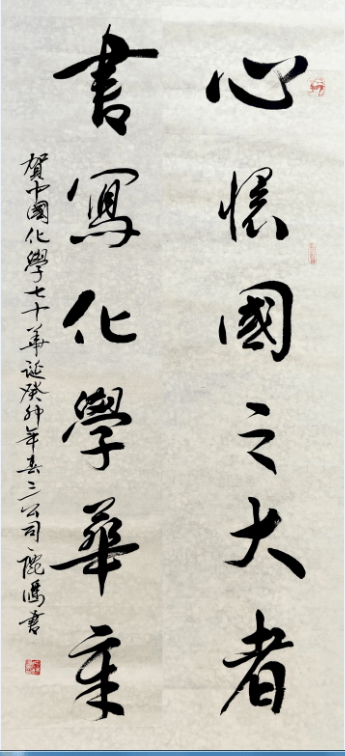 心懷國之大者
書寫化學華章
賀中國化學七十華誕癸卯年春三公司龐鴻書